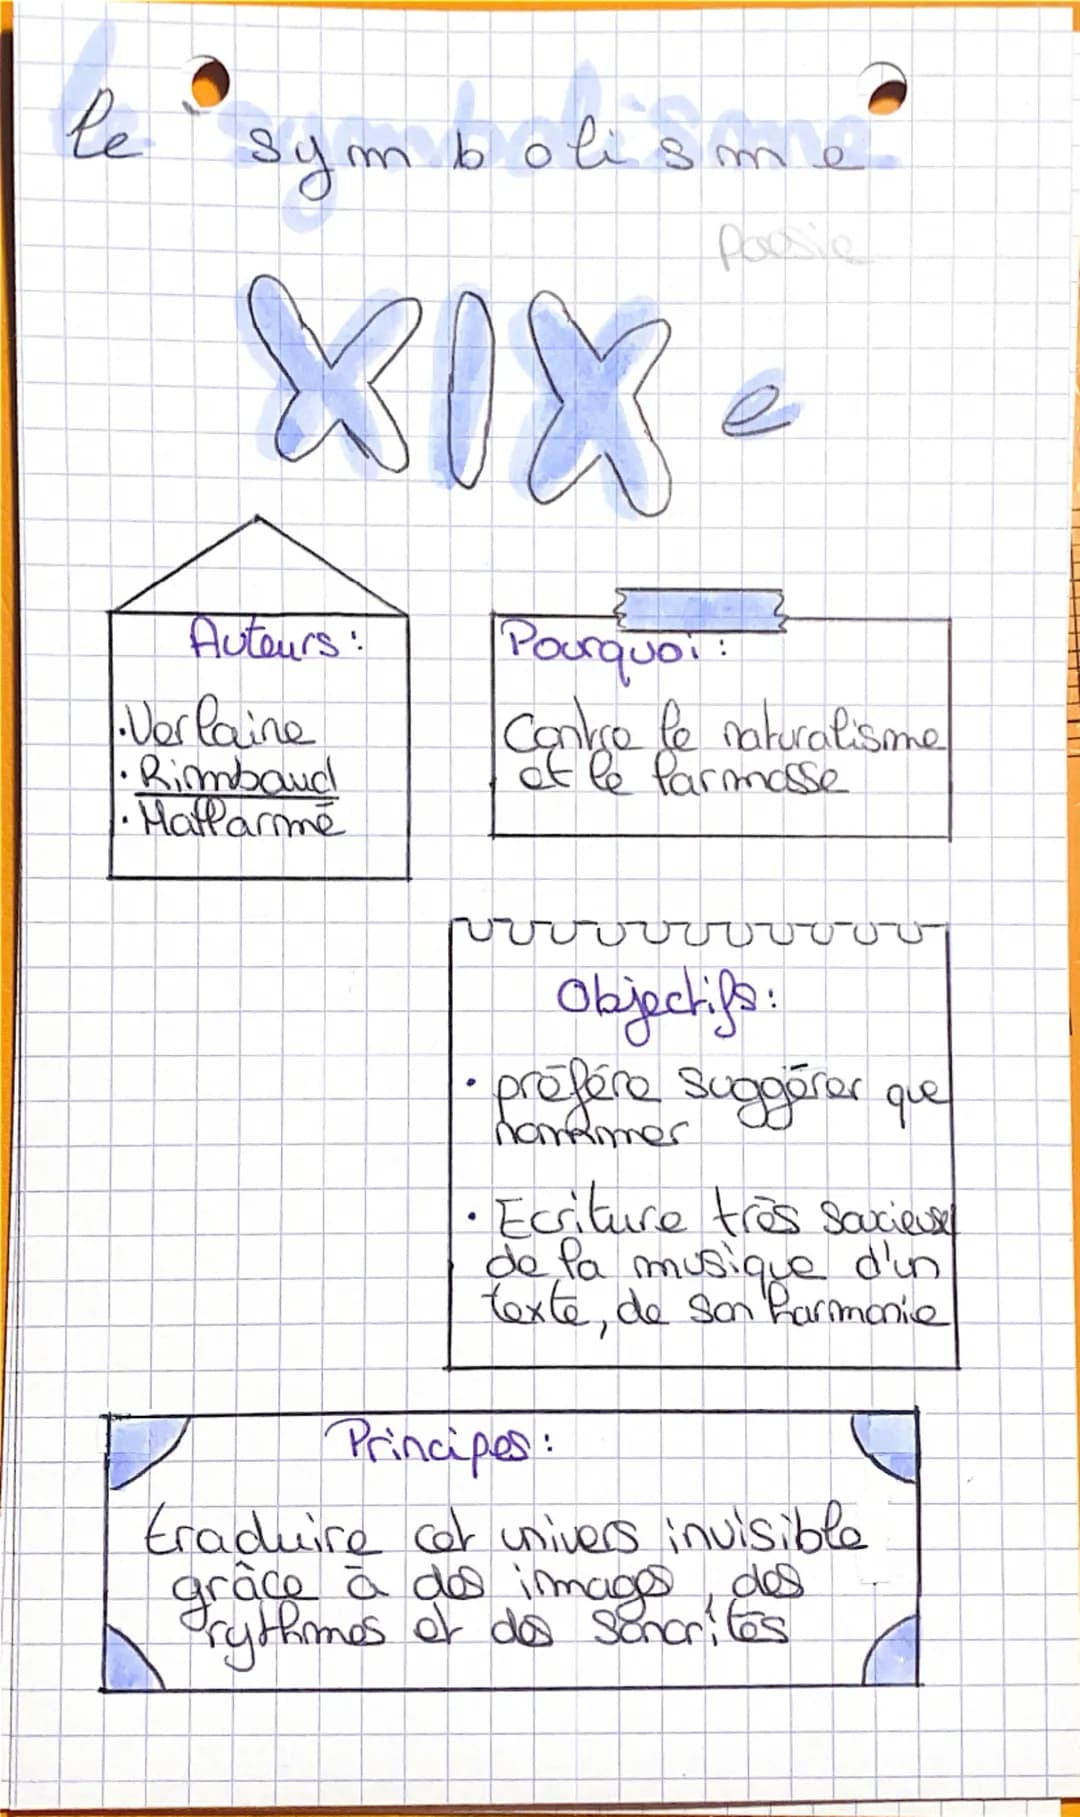 le symbolisme
Poésie
XIXe
Auteurs :
• Verlaine
• Rimbaud
• Mallarmé
Pourquoi :
Contre le naturalisme
et le Parnasse
Objectifs :
• préfère suggérer que
nommer
• Ecriture très soucieuse
de la musique d'un
texte, de son harmonie
Principes :
traduire cet univers invisible
grâce à des images, des
rythmes et des sonorités